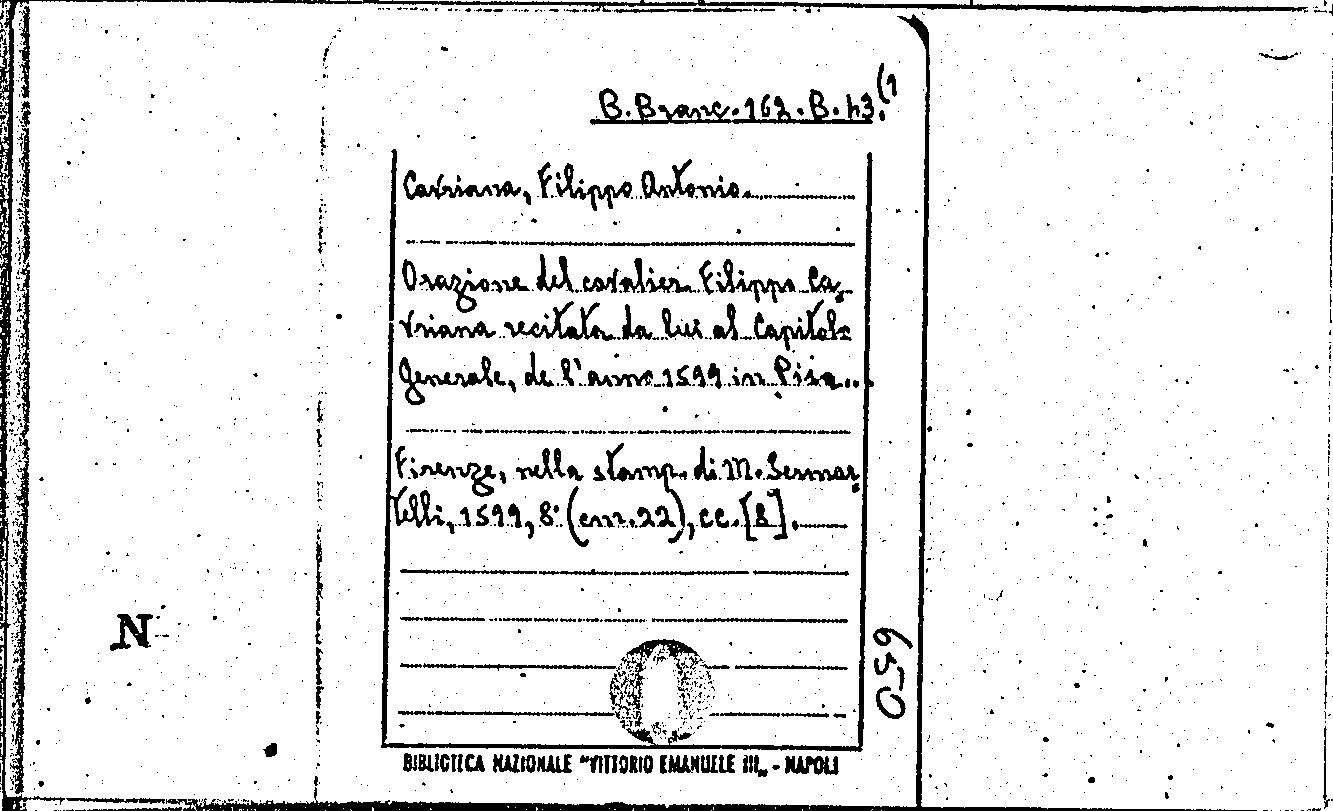 B. Branc. 162. B. 43.(1
Cavriana, Filippo Antonio.
Orazione del cavalier Filippo Ca-
vriana recitata da lui al Capitolo
Generale, de l'anno 1599 in Pisa...
Firenze, nella stamp. di M. Sermar-
telli, 1599, 8° (cm. 22), cc. [8].
N
650
BIBLIOTECA NAZIONALE "VITTORIO EMANUELE III„ - NAPOLI